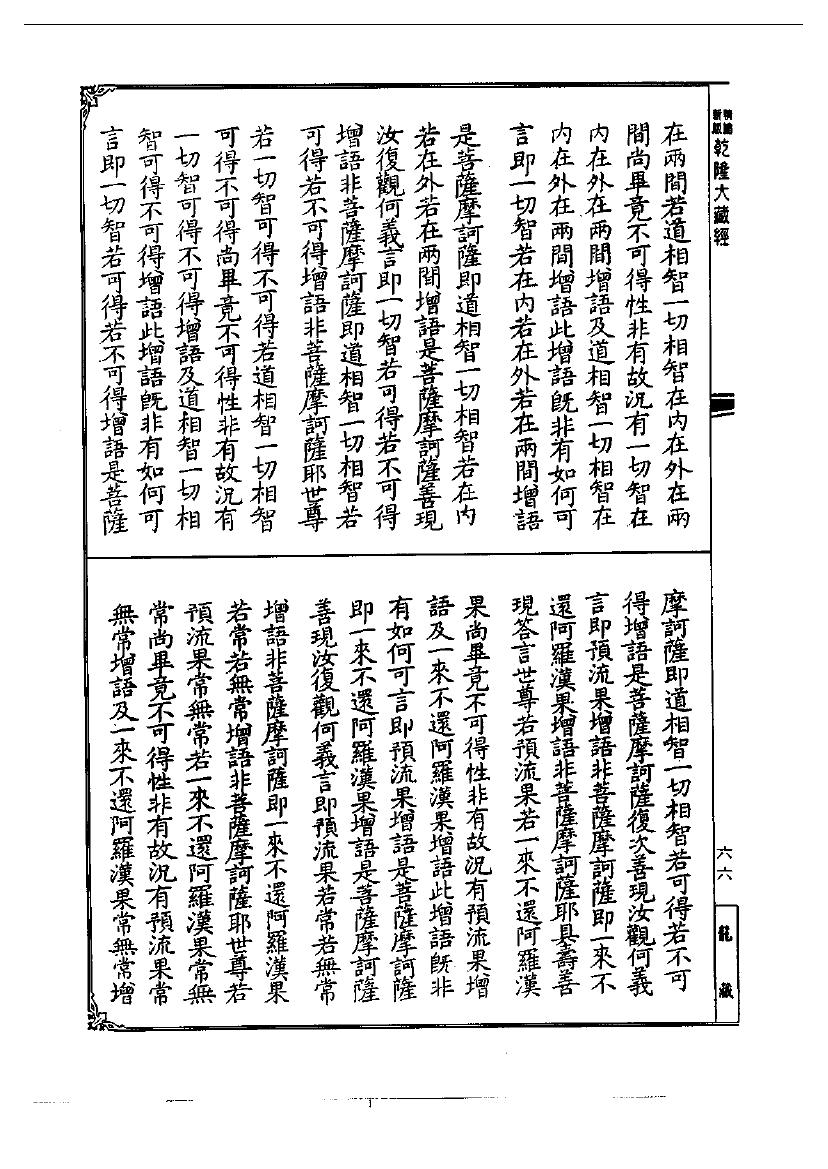 新編
縮版
乾隆大藏經
在兩間若道相智一切相智在內在外在兩
間尚畢竟不可得性非有故況有一切智在
內在外在兩間增語及道相智一切相智在
內在外在兩間增語此增語旣非有如何可
言即一切智若在內若在外若在兩間增語
是菩薩摩訶薩即道相智一切相智若在內
若在外若在兩間增語是菩薩摩訶薩善現
汝復觀何義言即一切智若可得若不可得
增語非菩薩摩訶薩即道相智一切相智若
可得若不可得增語非菩薩摩訶薩耶世尊
若一切智可得不可得若道相智一切相智
可得不可得尚畢竟不可得性非有故況有
一切智可得不可得增語及道相智一切相
智可得不可得增語此增語旣非有如何可
言即一切智若可得若不可得增語是菩薩
摩訶薩即道相智一切相智若可得若不可
得增語是菩薩摩訶薩復次善現汝觀何義
言即預流果增語非菩薩摩訶薩即一來不
還阿羅漢果增語非菩薩摩訶薩耶具壽善
現答言世尊若預流果若一來不還阿羅漢
果尚畢竟不可得性非有故況有預流果增
語及一來不還阿羅漢果增語此增語旣非
有如何可言即預流果增語是菩薩摩訶薩
即一來不還阿羅漢果增語是菩薩摩訶薩
善現汝復觀何義言即預流果若常若無常
增語非菩薩摩訶薩即一來不還阿羅漢果
若常若無常增語非菩薩摩訶薩耶世尊若
預流果常無常若一來不還阿羅漢果常無
常尚畢竟不可得性非有故況有預流果常
無常增語及一來不還阿羅漢果常無常增
六六
龍藏
1